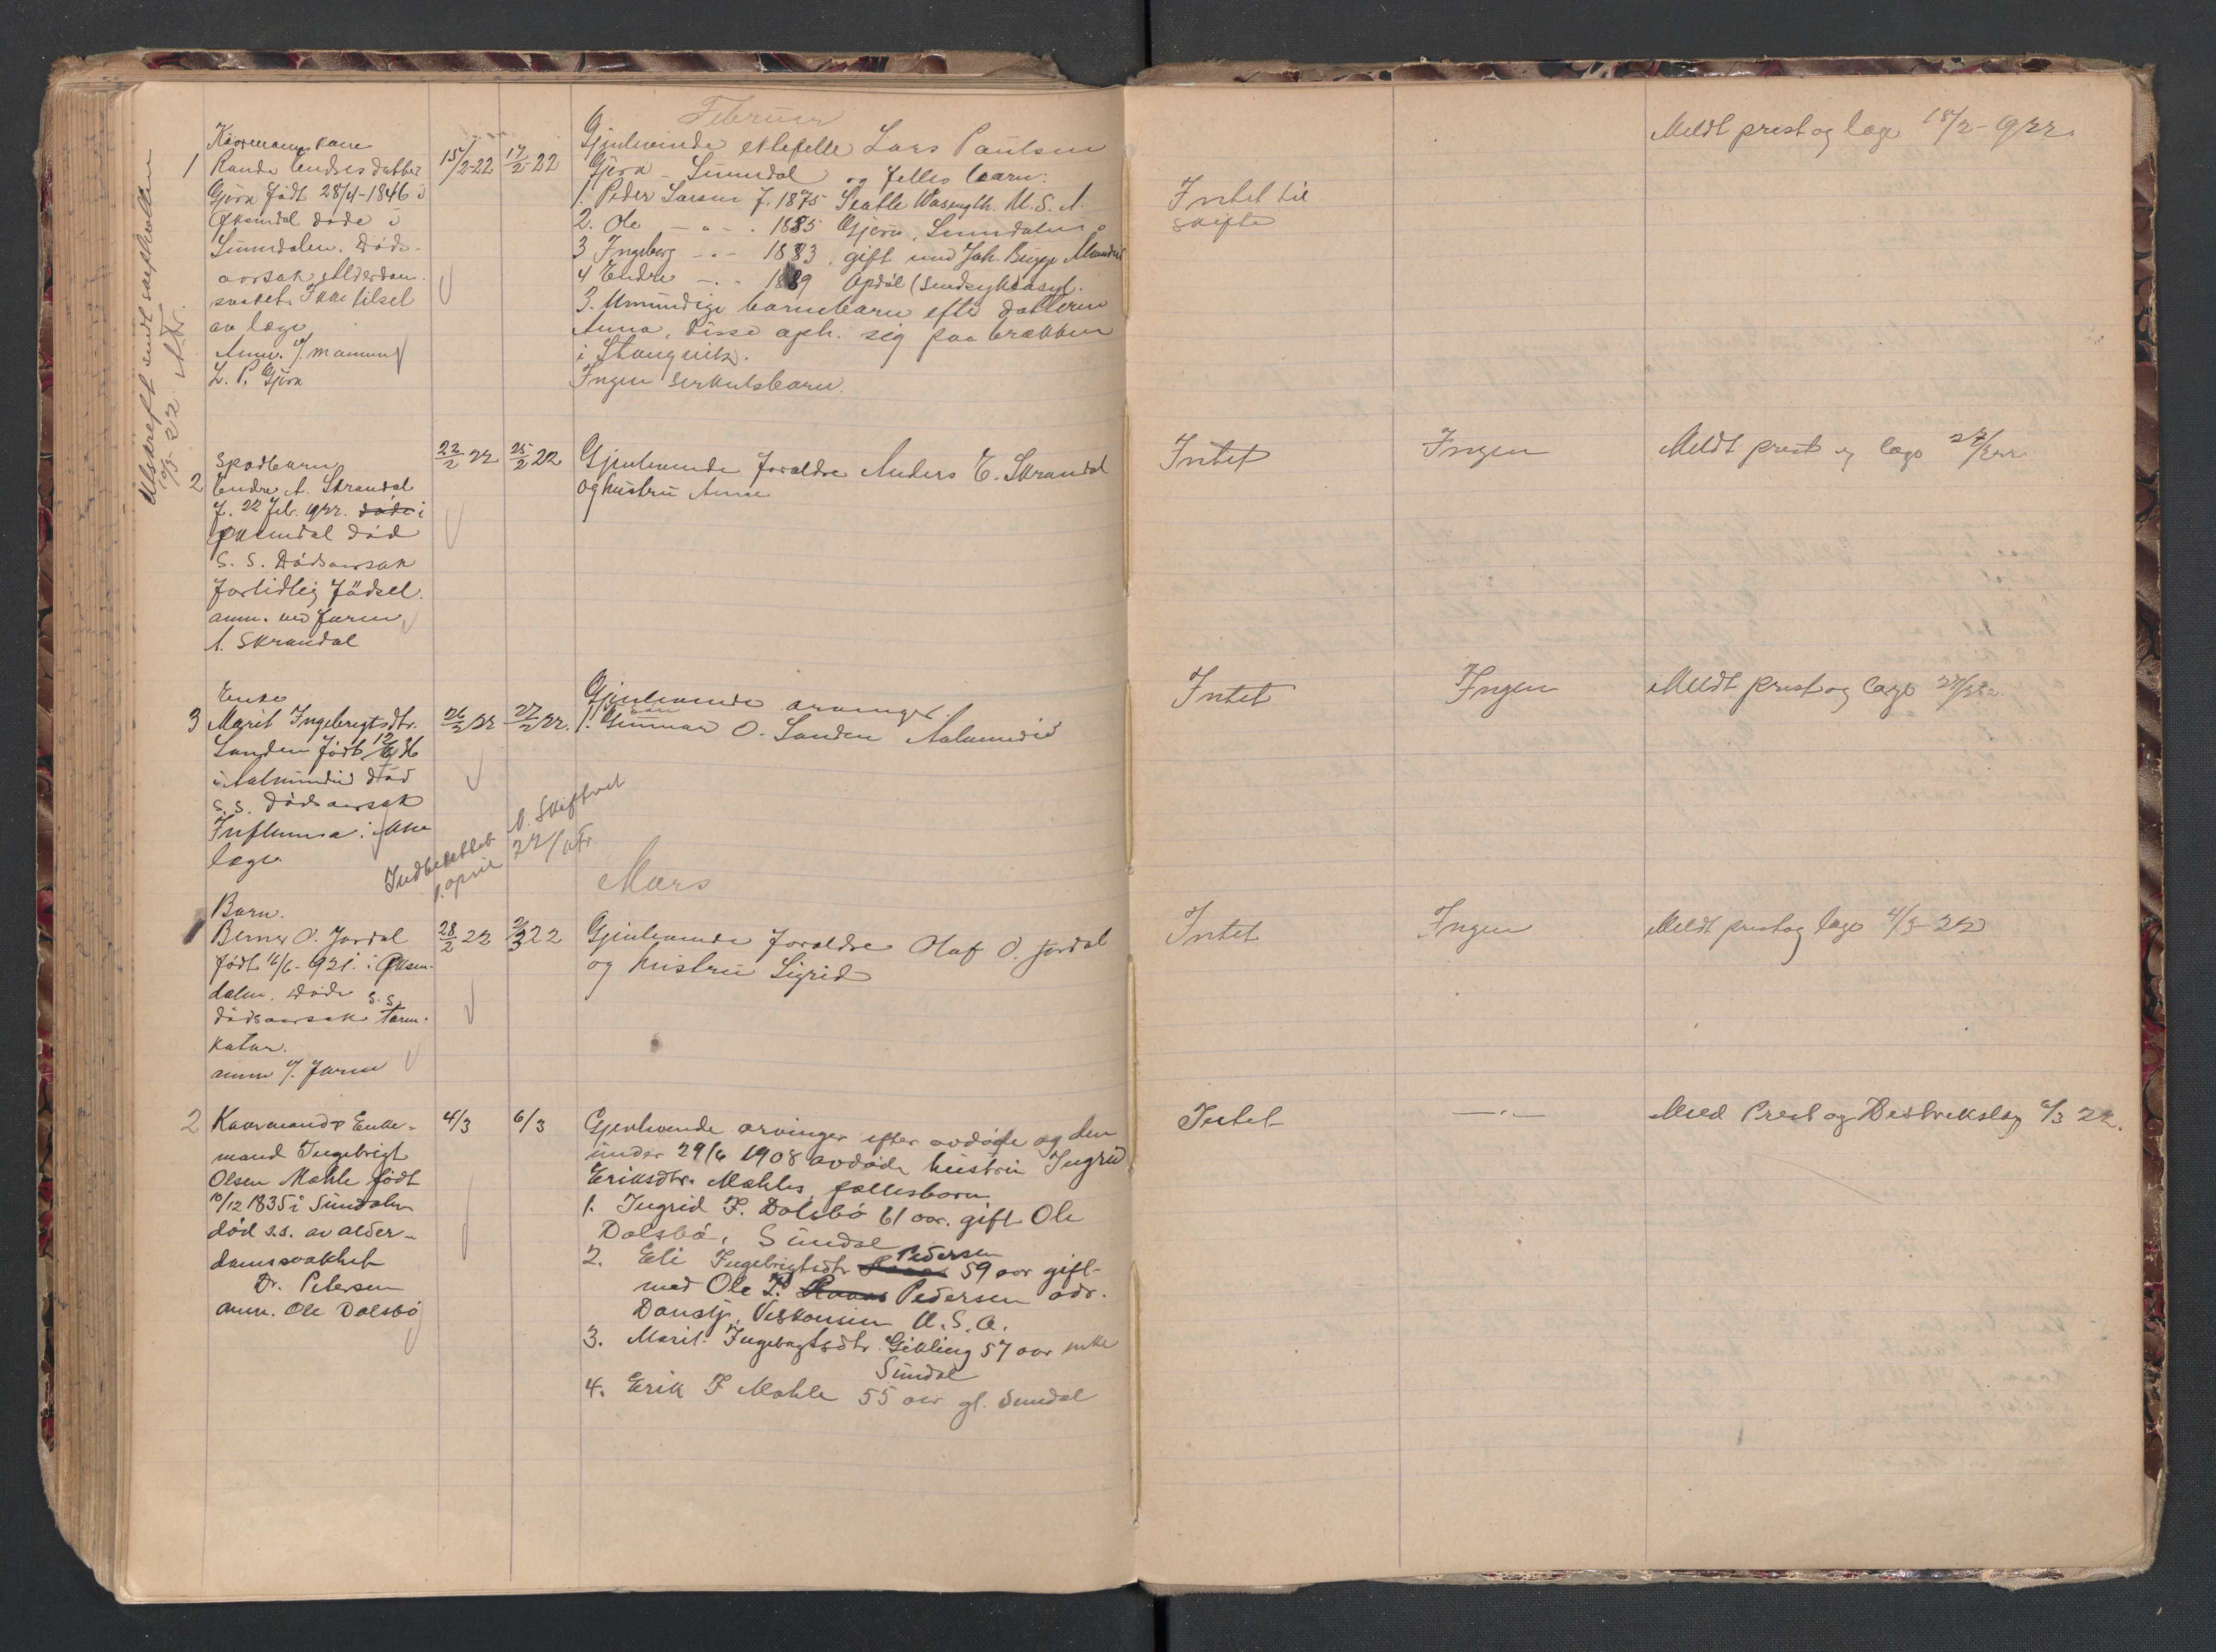 Februar
Kaarmanns kone
1 Randi Endresdatter
Gjøra født 28/4-1846 i
Øksendal døde i
Sunndalen. Døds-
aarsak Alderdom.
svakhet. Ikke tilset
av læge
Anm. v/ mannen
L. P. Gjøra
15/2-22
17/2-22
Gjenlevende ektefelle Lars Paulsen
Gjøra - Sunndal og felles barn:
1. Peder Larsen f. 1875 Seatle Wasength. U.S.A.
2. Ole — " — . 1885 Gjøra, Sunndalen
3 Ingeborg - " - 1883. gift med Joh. Bugge
4 Endre — " - 1889 Opdøl (sindsykeasyl.
3. Umyndige barnebarn efter datteren
Anna, disse oph. sig paa brækken
i Stangvik.
Ingen serkulsbarn.
Intet til
skifte
Meldt prest og læge 18/2-922.
Utskreft sendt sorenskriveren
10/3-22
Spædbarn
2 Endre A. Skrondal
f. 22 feb. 922. døde i
Øksendal død
S. S. Dødsaarsak
fortidlig fødsel.
anm. ved faren
A. Skrondal
22/2 22
25/2 22
Gjenlevende foreldre Anders E. Skrondal
og hustru Anne
Intet
Ingen
Meldt prest og læge 27/2 22
Enke
3 Marit Ingebrigtsdtr.
Sanden født 12/ 36
i Aalvundeid død
S. S. Dødsaarsak
Influensa: ikke
læge
26/2 22
27/2 22.
Gjenlevende arvinger.
Søn
1. Gunnar O. Sanden Aalvundeid
Intet
Ingen
Meldt prest og læge 27/2 22.
Indberettet t. Skifteret
1. april 22
Mars
Barn.
1 Berner O. Jordal
født 16/6-921. i Øksen-
dalen. Døde S. S.
dødsaarsak Tarm-
katar.
anm v/. faren
28/2 22
2/3 22
Gjenlevende foreldre Olaf O. Jordal
og hustru Sigrid
Intet
Ingen
Meldt prest og læge 4/3-22
2 Kaarmand & Enke-
mand Ingebrigt
Olsen Mahle født
10/12 1835 i Sundalen
død s.s. av alder-
domssvakhet
Dr. Petersen
anm. Ole Dalsbø
4/3
6/3
Gjenlevende arvinger efter avdøde og den
under 29/6 1908 avdøde hustru Ingrid
Eriksdtr. Mahles fællesbarn
1. Ingrid I. Dalsbø 61 aar. gift Ole
Dalsbø, Sundal
Pedersen
2. Eli Ingebrigtsdtr 59 aar gift
med Ole P. Pedersen adr.
Viskonsin U.S.A.
3. Marit Ingebrigtsdtr. Gikling 57 aar enke
Sundal
4. Erik I Mahle 55 aar gl. Sundal
Intet
— " —
Meld Prest og Destrekslæg 6/3 22.